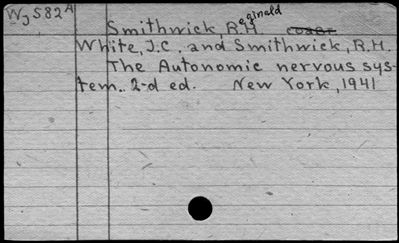 Wj 582A
Smithwick, Reginald H. coaer
White, J.C. and Smithwick, R.H.
The Autonomic nervous sys-
tem.. 2-d ed. New York, 1941